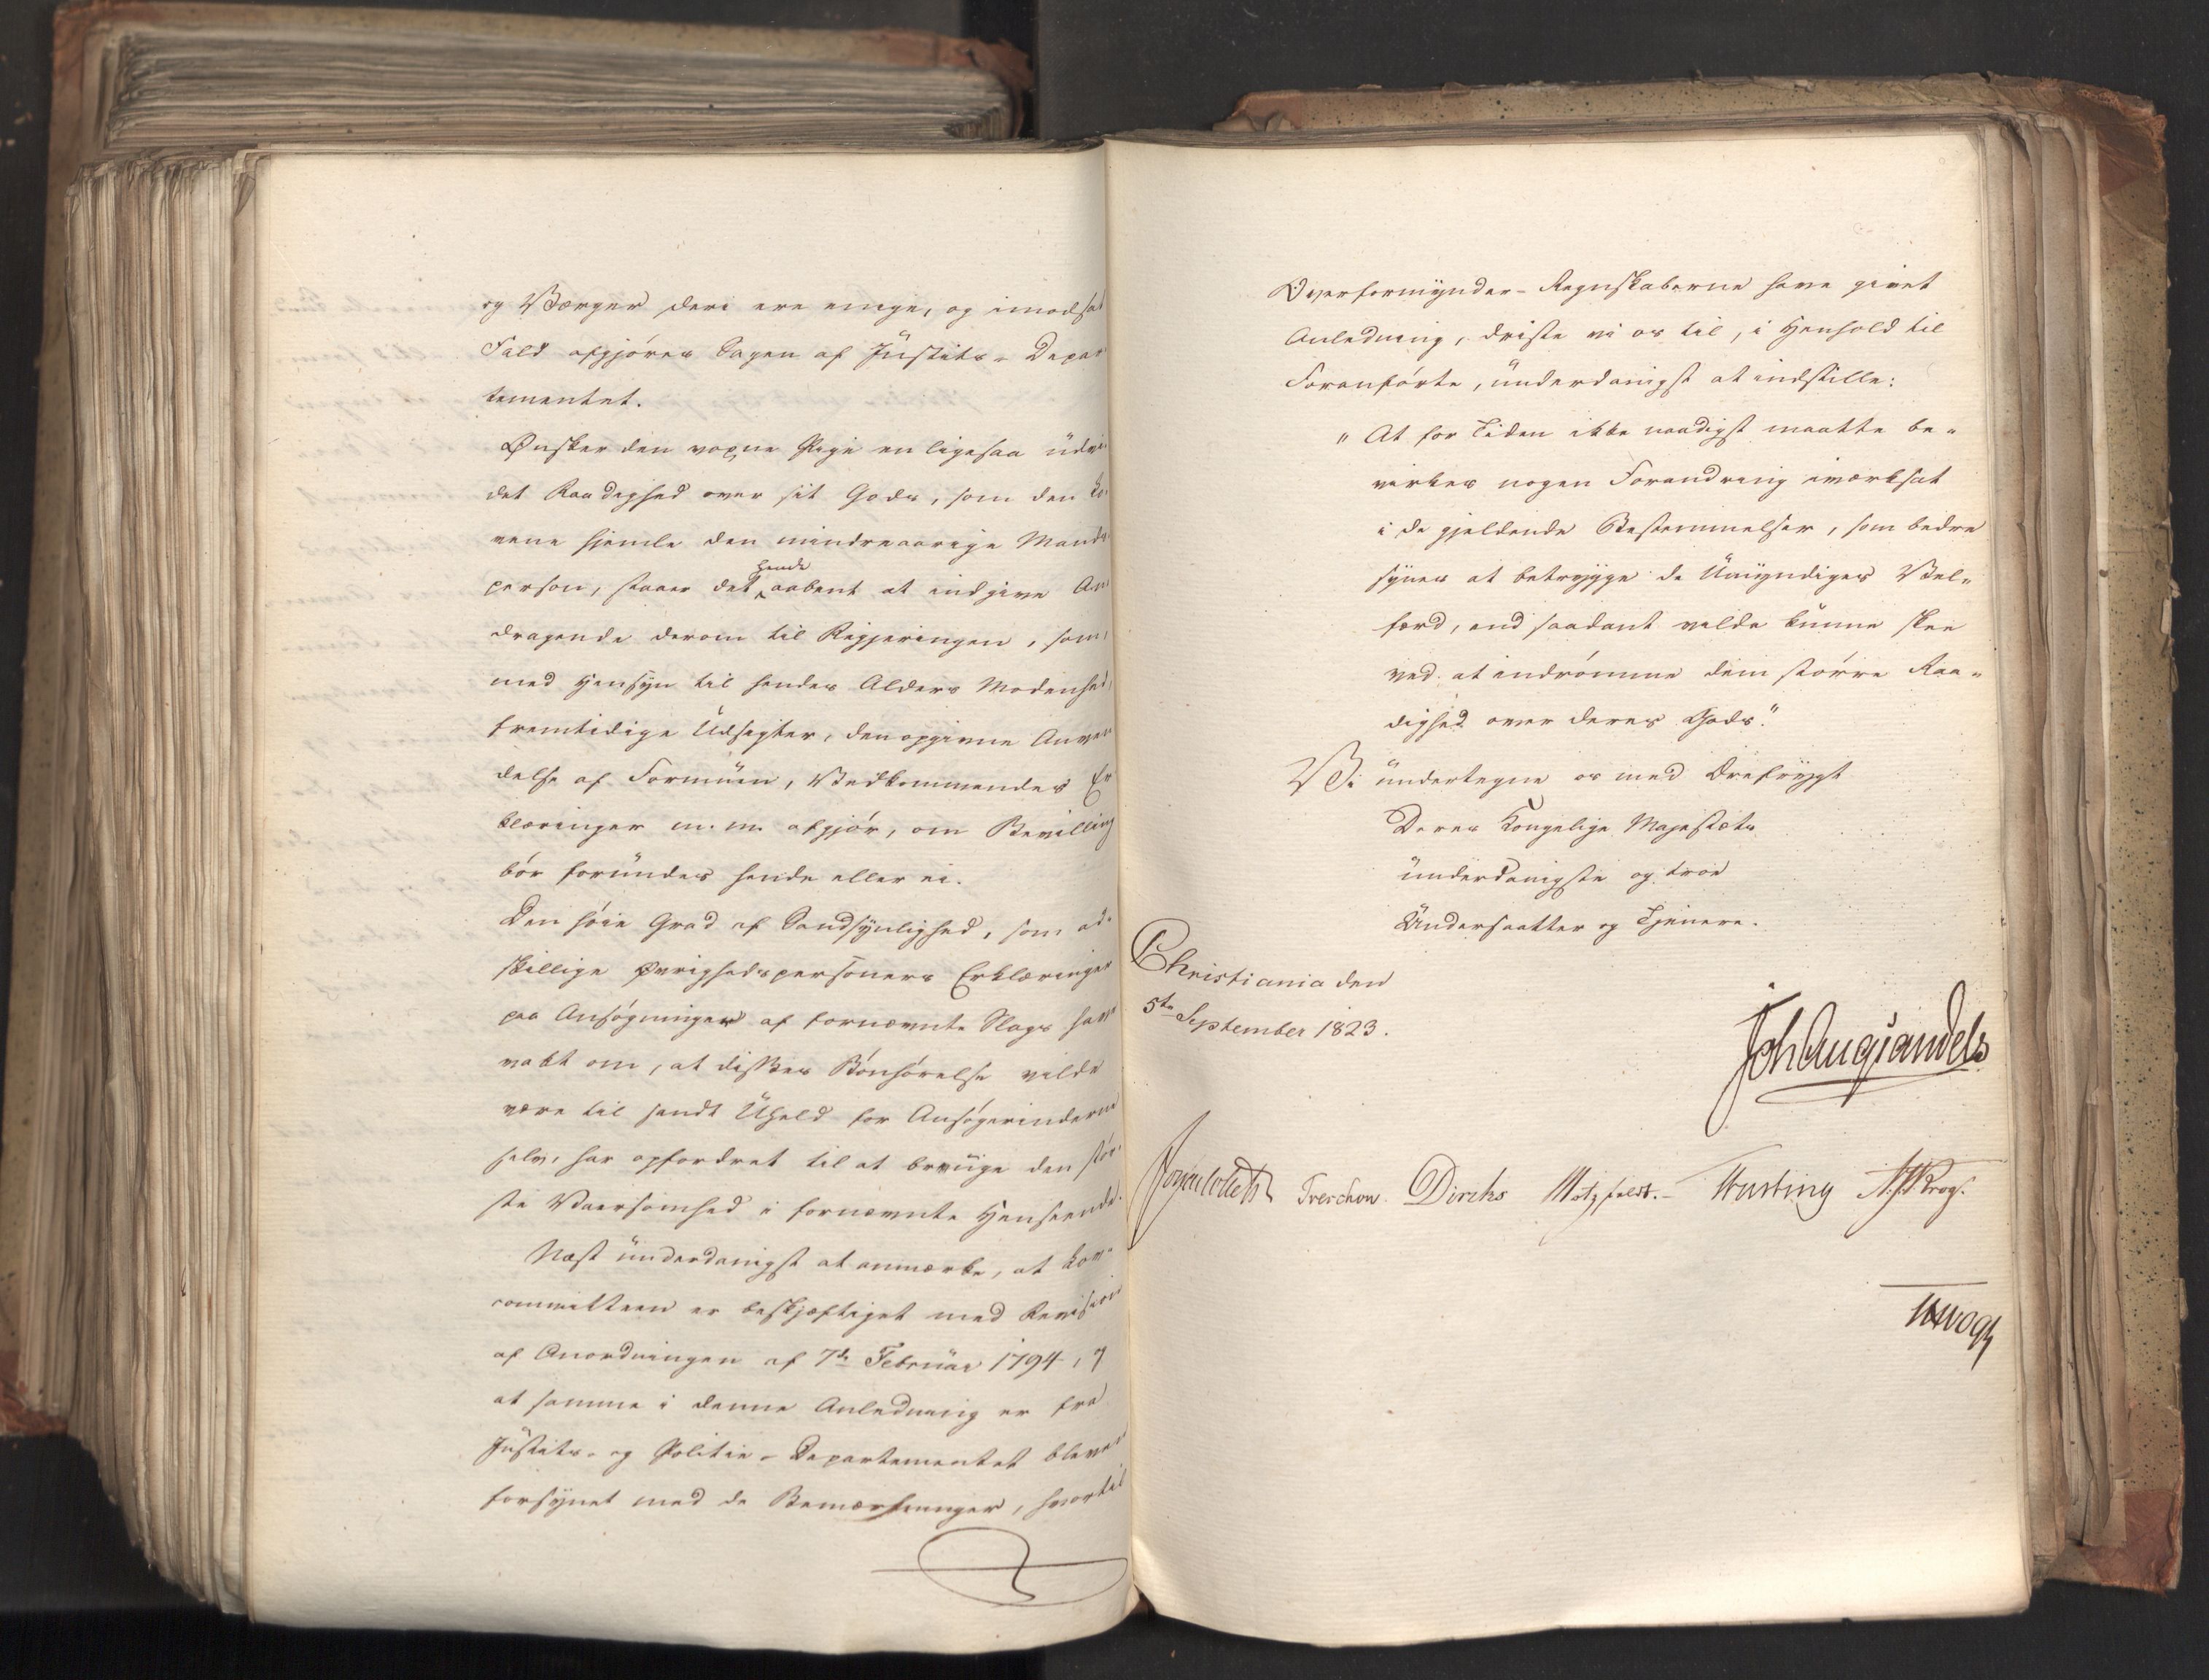 og Værger deri ere enige, og i modsat
Fald afgjøres Sagen af Justits-Depar
tementet.
Ønsker den voxne Pige en ligesaa udvi
det Raadighed over sit Gods, som den Lo
vene hjemle den mindreaarige Mands
person, staaer det hende aabent at indgive An
dragende derom til Regjeringen, som,
med Hensyn til hendes Alders Modenhed,
fremtidige Udsigter, den opgivne Anven
delse af Formuen, Vedkommendes Er
klæringer m. m. afgjør, om Bevilling
bør forundes hende eller ei.
Den høie Grad af Sandsynlighed, som ad-
skillige Øvrighedspersoners Erklæringer
paa Ansøgninger af fornævnte Slags have
vakt om, at disses Bønhørelse vilde
være til sandt Uheld for Ansøgerinderne
selv, har opfordret til at bruge den stør-
ste Varsomhed i fornævnte Henseende.
Næst underdanigst at anmærke, at Lov-
committeen er beskjæftiget med Revision
af Anordningen af 7de Februar 1794, og
at samme i denne Anledning er fra
Justits- og Politie-Departementet bleven
forsynet med de Bemærkninger, hvortil
Overformynder-Regnskaberne have givet
Anledning, driste vi os til, i Henhold til
Foranførte, underdanigst at indstille:
"At for Tiden ikke naadigst maatte be-
virkes nogen Forandring iværksat
i de gjeldende Bestemmelser, som bedre
synes at betrygge de Umyndiges Vel-
færd, end saadant vilde kunne skee
ved at indrømme dem større Raa-
dighed over deres Gods."
Vi undertegne os med Ærefrygt
Deres Kongelige Majestæts
underdanigste og troe
Undersaatter og Tjenere.
Christiania den
5te September 1823.
Joh Aug Sandels
Jonas Collett Treschow. Diriks Motzfeldt. Fasting N. J. Krog.
Vogt